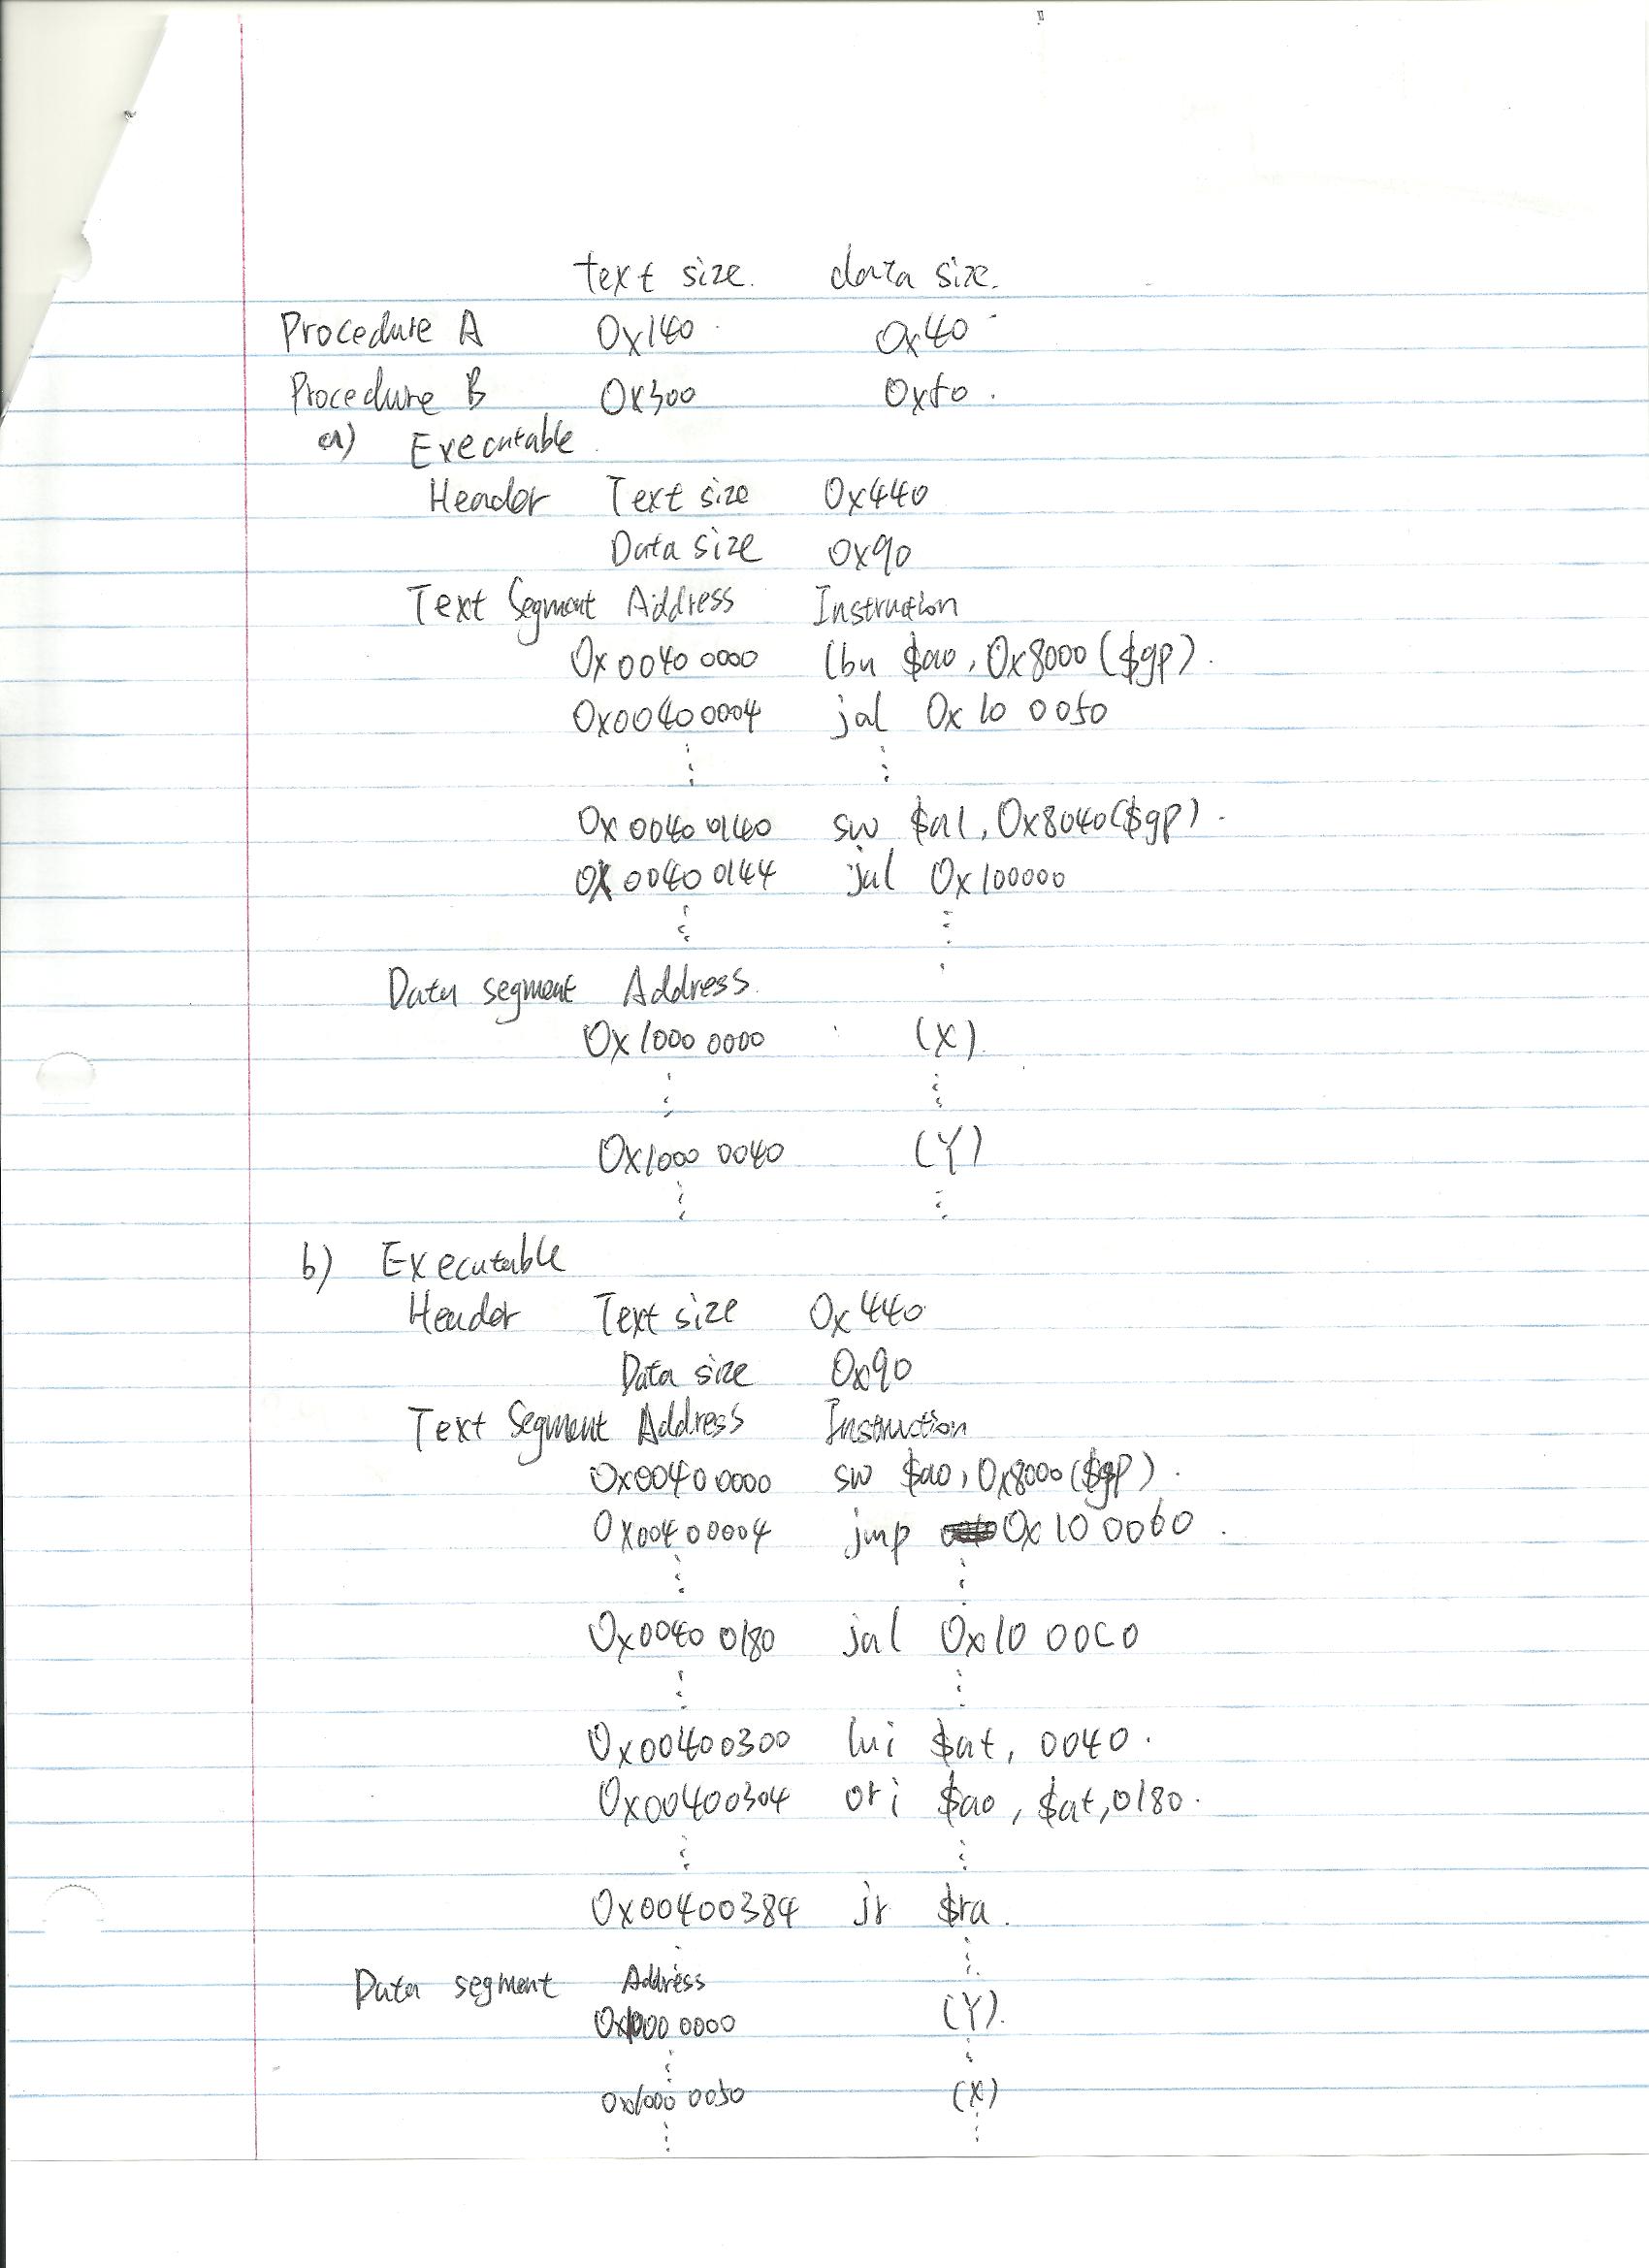 text size. data size.
Procedure A 0x140 0x40
Procedure B 0x300 0x50.
a) Executable
Header Text size 0x440
Data size 0x90
Text Segment Address Instruction
0x0040 0000 lbu $a0, 0x8000 ($gp).
0x0040 0004 jal 0x 10 0050
0x0040 0140 sw $a1, 0x8040($gp).
0x0040 0144 jal 0x 100000
Data segment Address
0x1000 0000 (X)
0x1000 0040 (Y)
b) Executable
Header Text size 0x440
Data size 0x90
Text Segment Address Instruction
0x0040 0000 sw $a0, 0x8000 ($gp).
0x0040 0004 jmp 0x 10 0060.
0x0040 0180 jal 0x10 00C0
0x00400300 lui $at, 0040.
0x00400304 ori $a0, $at, 0180.
0x00400384 jr $ra.
Data segment Address
0x1000 0000 (Y).
0x1000 0050 (X)